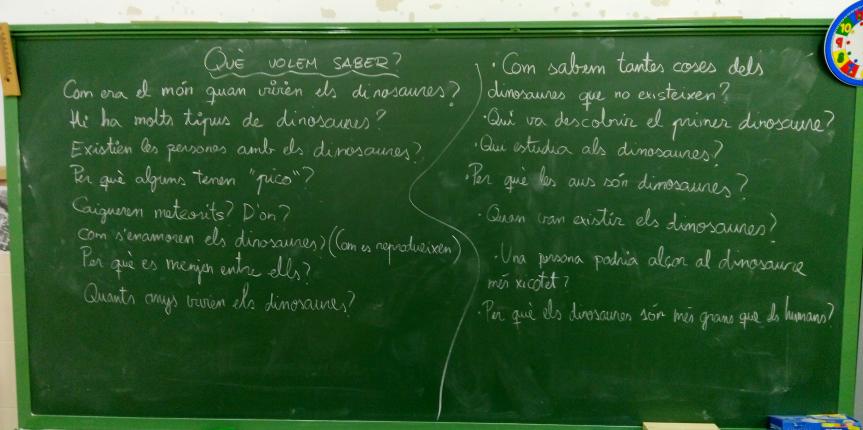 QUÈ VOLEM SABER?
Com era el món quan vivien els dinosaures?
Hi ha molts tipus de dinosaures?
Existien les persones amb els dinosaures?
Per què alguns tenen "pico"?
Caigueren meteorits? D'on?
Com s'enamoren els dinosaures? (Com es reprodueixen)
Per què es menjen entre ells?
Quants anys vivien els dinosaures?
· Com sabem tantes coses dels
dinosaures que no existeixen?
· Qui va descobrir el primer dinosaure?
· Qui estudia als dinosaures?
· Per què les aus són dinosaures?
· Quan van existir els dinosaures?
· Una persona podria alçar al dinosaure
més xicotet?
· Per què els dinosaures són més grans que els humans?
10
9